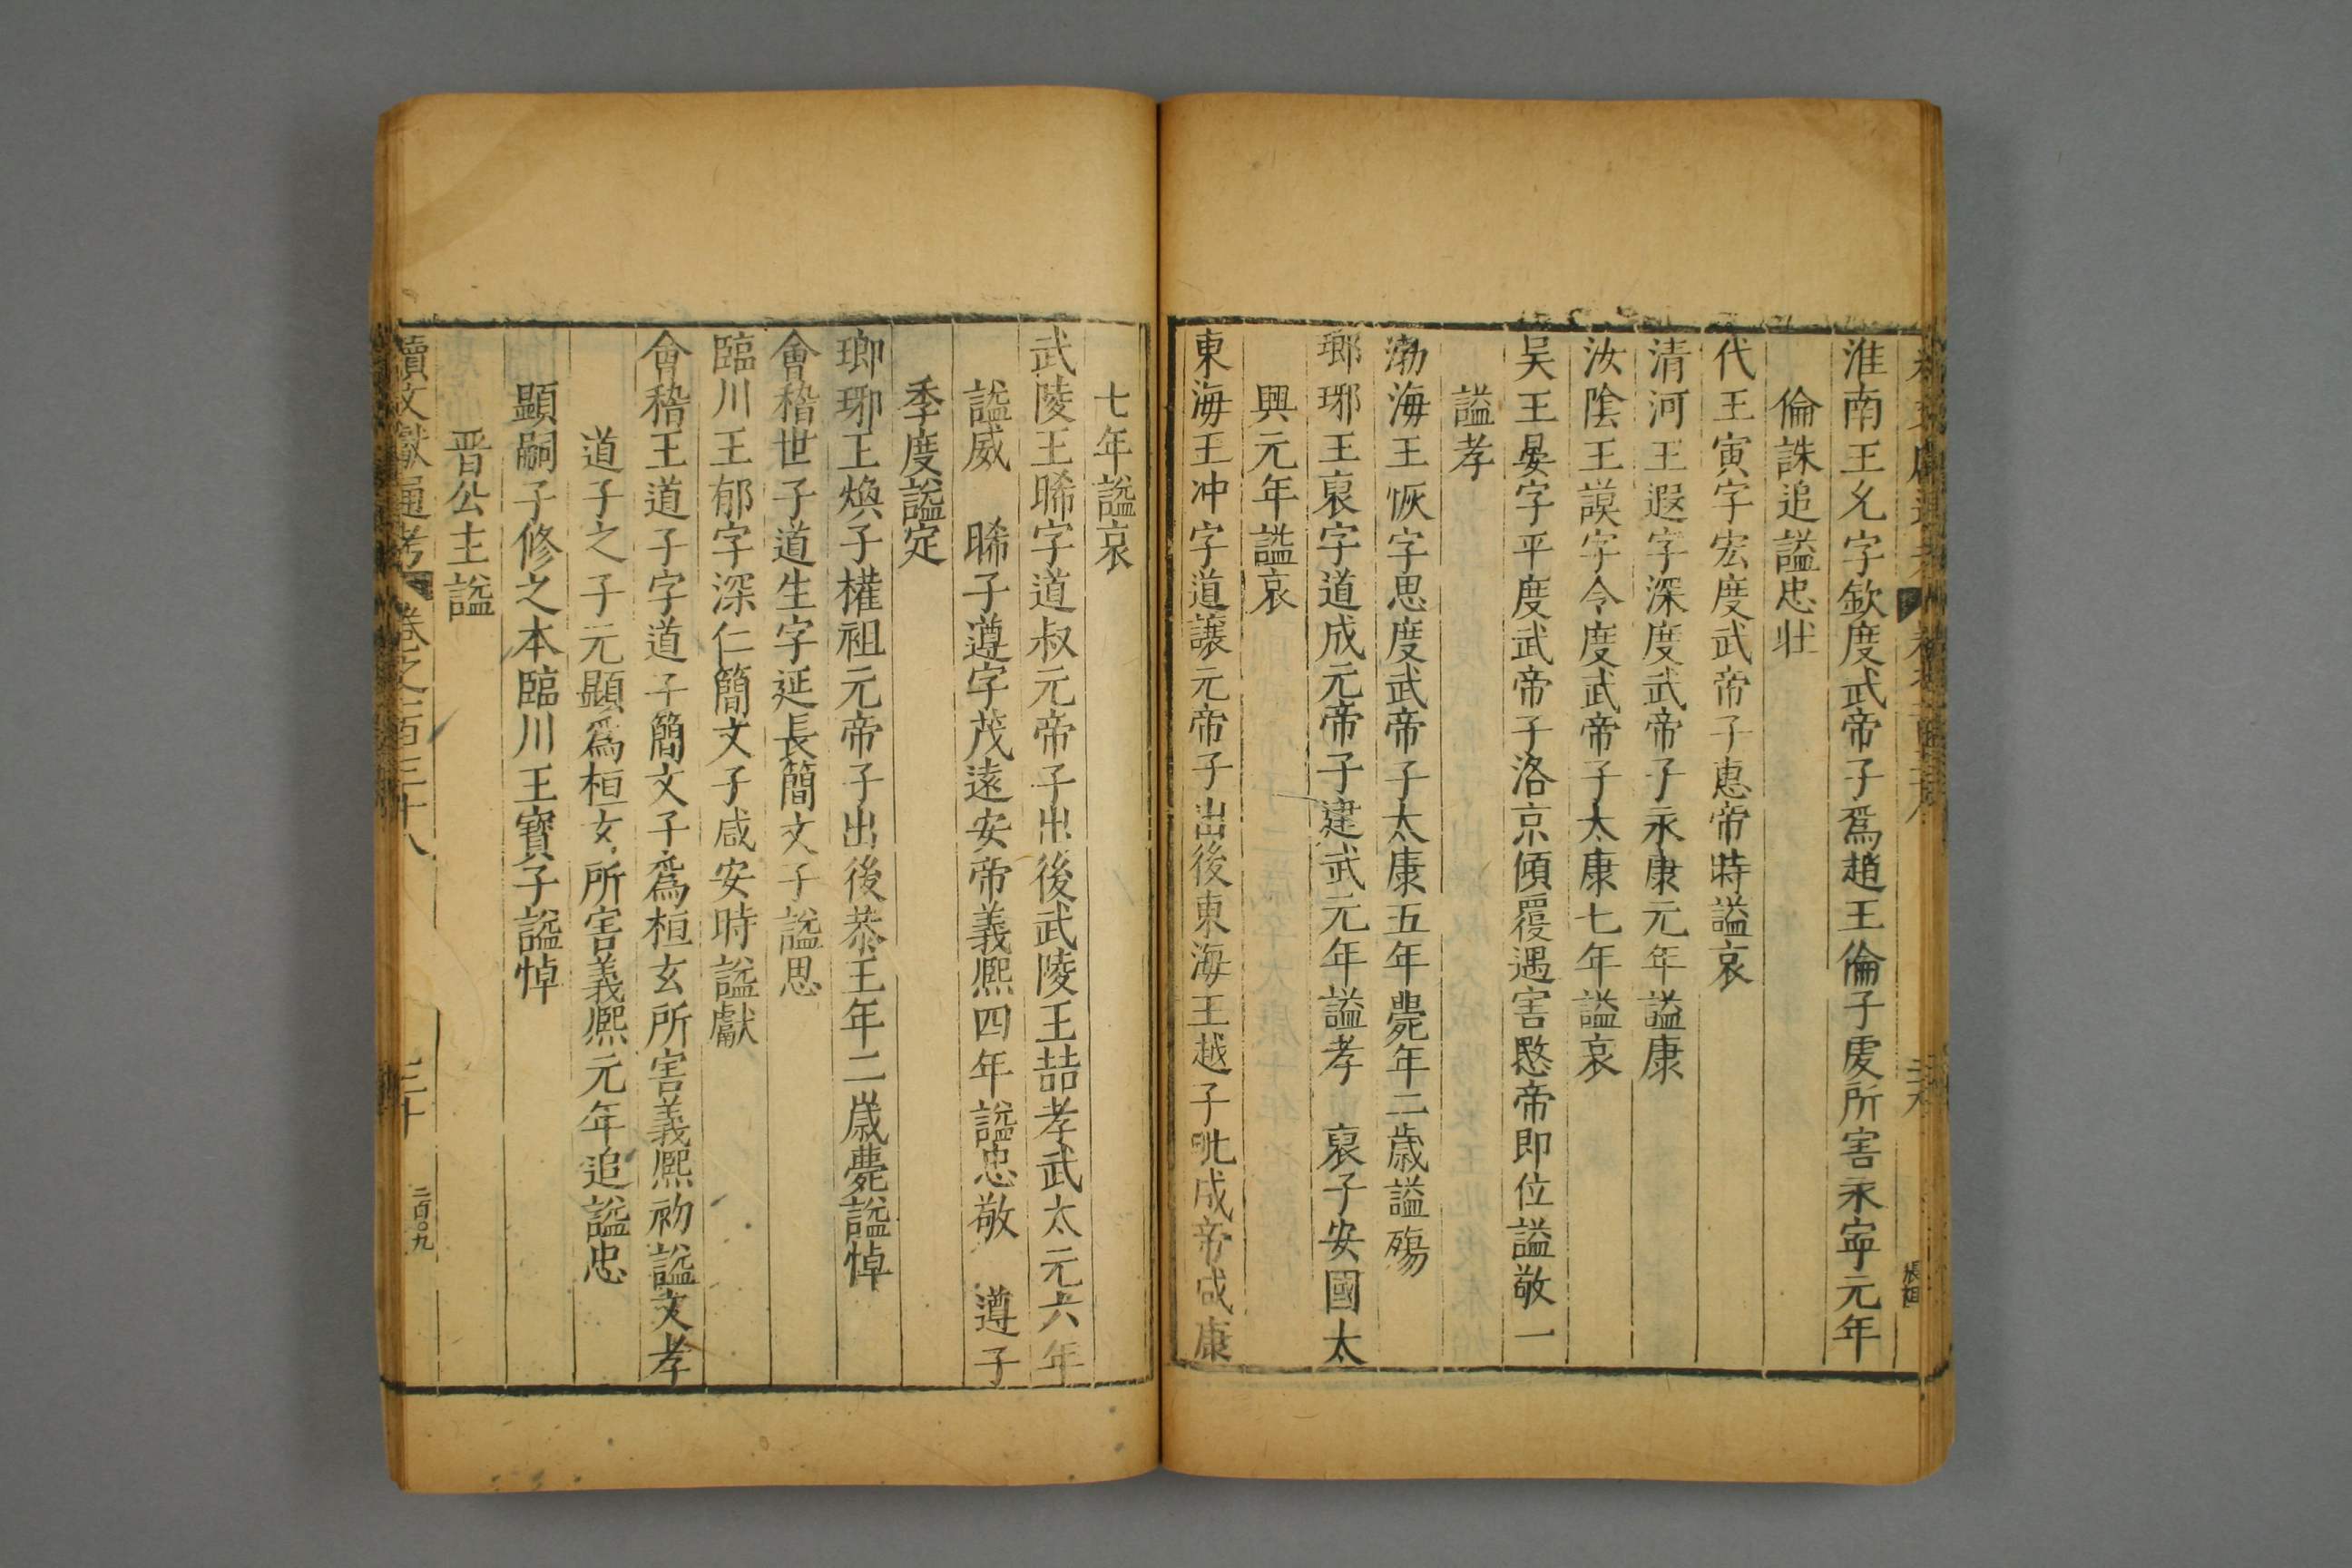 淮南王允字欽度武帝子爲趙王倫子䖍所害永寧元年
倫誅追謚忠壯
代王寅字宏度武帝子惠帝時謚哀
清河王遐字深度武帝子永康元年謚康
汝隂王謨字令度武帝子太康七年謚哀
吴王晏字平度武帝子洛京傾覆遇害愍帝即位謚敬一
謚孝
渤海王恢字思度武帝子太康五年薨年二歲謚殤
瑯琊王裒字道成元帝子建武元年謚孝　裒子安國太
興元年謚哀
東海王冲字道讓元帝子出後東海王越子毗成帝咸康
七年謚哀
武陵王晞字道叔元帝子出後武陵王喆孝武太元六年
謚威　晞子遵字茂遠安帝義熙四年謚忠敬　遵子
季度謚定
瑯琊王煥子權祖元帝子出後恭王年二歲薨謚悼
會稽世子道生字延長簡文子謚思
臨川王郁字深仁簡文子咸安時謚獻
會稽王道子字道子簡文子爲桓玄所害義熙初謚文孝
道子之子元顯爲桓玄所害義熙元年追謚忠
顯嗣子修之本臨川王寶子謚悼
晋公主謚
續文獻通考　卷之一百三十八　三十　二百〇九